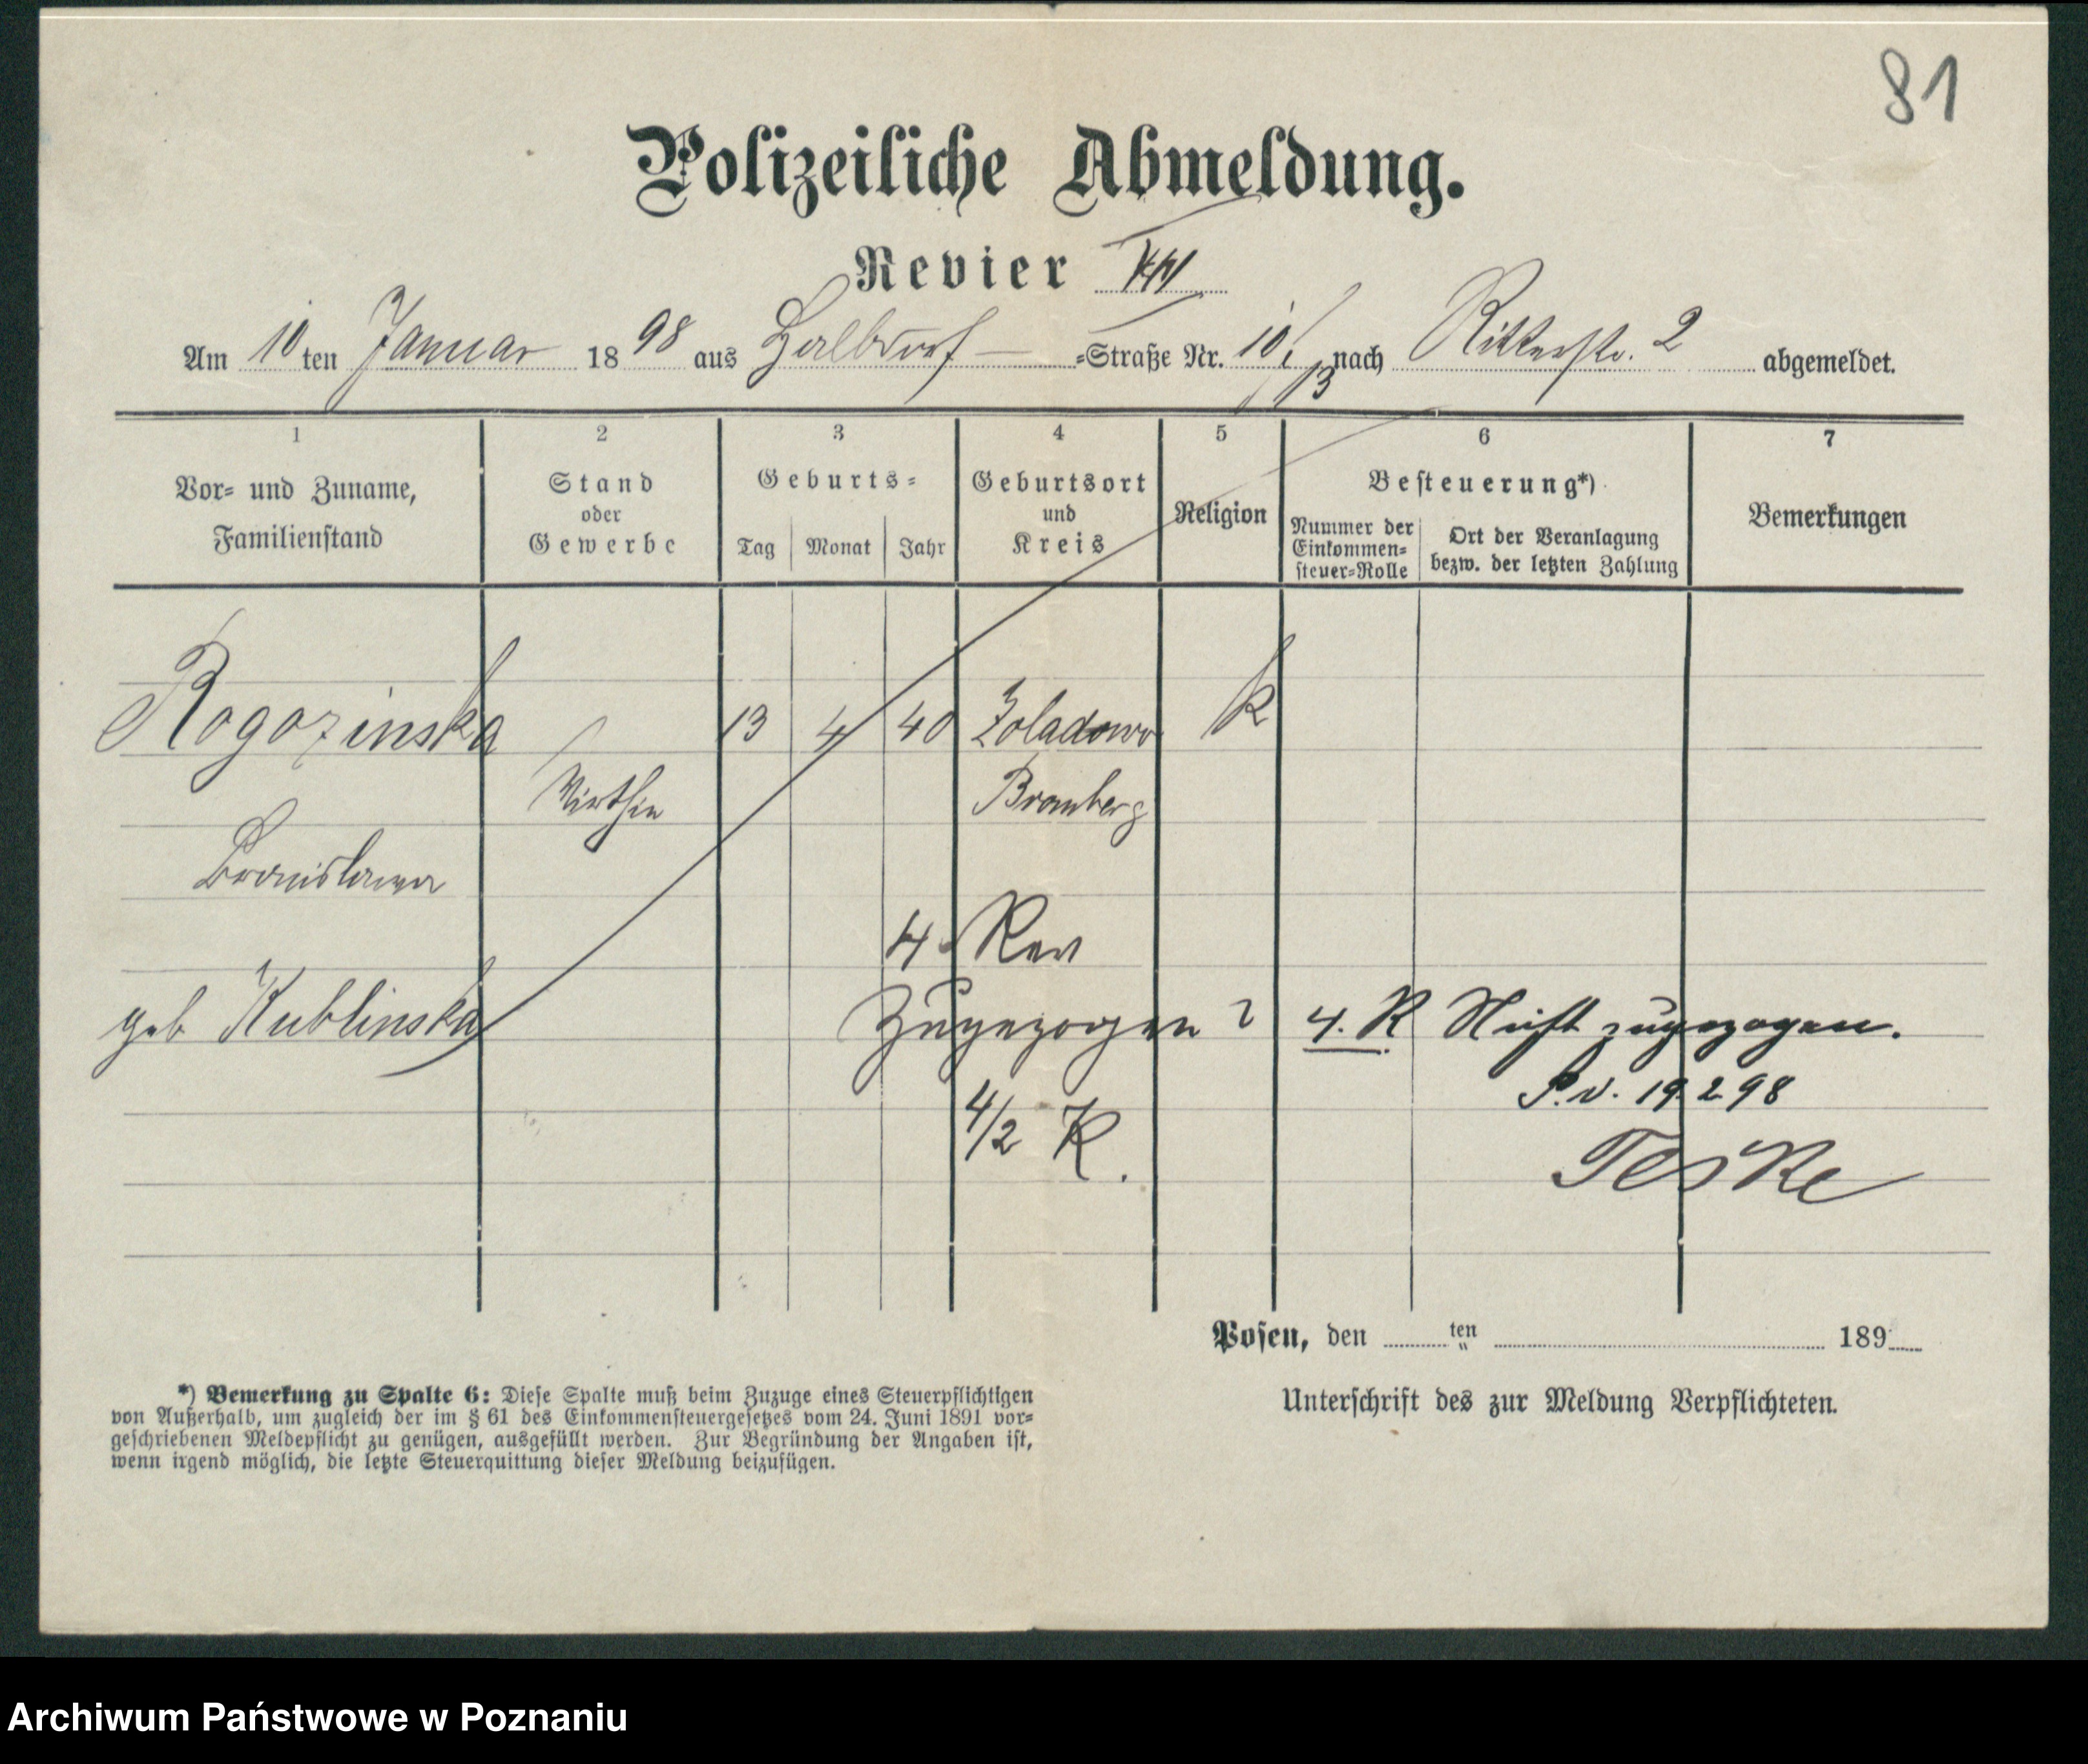 81
Polizeiliche Abmeldung.
Revier
Am 10 ten Januar 1898 aus Halbdorf-Straße Nr. 10 nach Ritterstr. 2 abgemeldet.
13
1 2 3 4 5 6 7
Vor- und Zuname, Familienstand
Stand oder Gewerbe
Geburts-
Tag Monat Jahr
Geburtsort und Kreis
Religion
Besteuerung*)
Nummer der Einkommen-steuer-Rolle
Ort der Veranlagung bezw. der letzten Zahlung
Bemerkungen
Rogozinska 13 4 40 Zoladowo k
Wirthin Bromberg
Bronislawa
4. Rev
geb Kublinska Zugezogen ? 4. R Nicht zugezogen.
P. v. 19 2 98
4/2 K.
Teske
Posen, den ten 189
*) Bemerkung zu Spalte 6: Diese Spalte muß beim Zuzuge eines Steuerpflichtigen
von Außerhalb, um zugleich der im § 61 des Einkommensteuergesetzes vom 24. Juni 1891 vor-
geschriebenen Meldepflicht zu genügen, ausgefüllt werden. Zur Begründung der Angaben ist,
wenn irgend möglich, die letzte Steuerquittung dieser Meldung beizufügen.
Unterschrift des zur Meldung Verpflichteten.
Archiwum Państwowe w Poznaniu